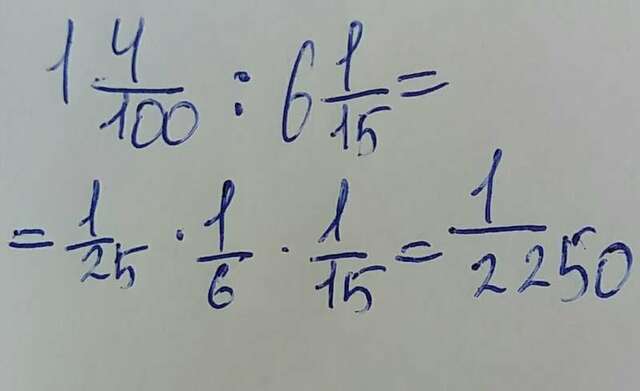 1 4/100 : 6 1/15 =
= 1/25 · 1/6 · 1/15 = 1/2250